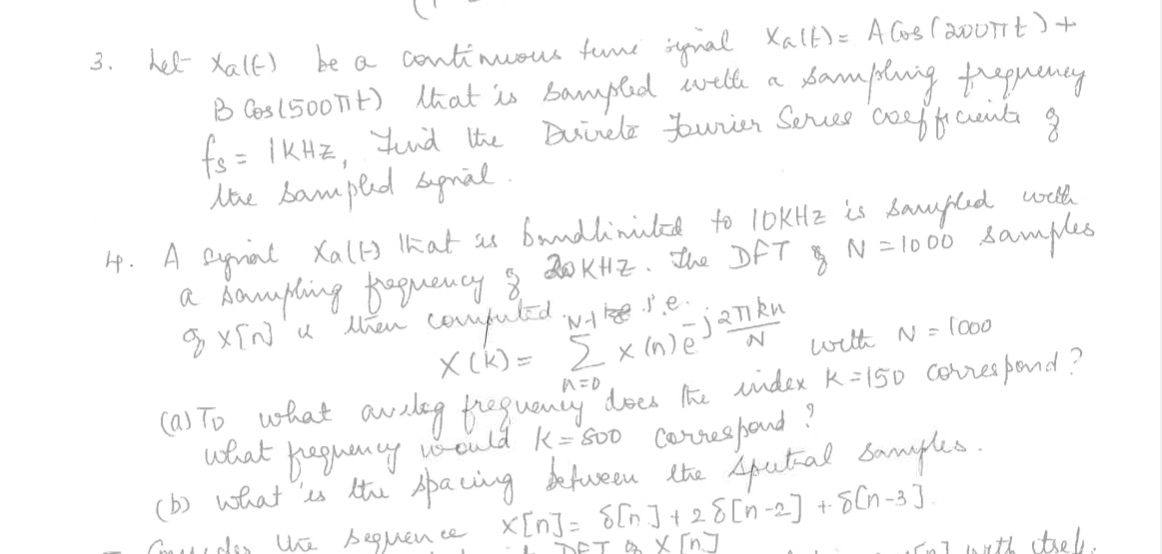 3. Let Xa(t) be a continuous time signal Xa(t) = A Cos(200πt) +
B Cos(500πt) that is sampled with a sampling frequency
fs = 1KHZ, Find the Discrete Fourier Series coefficients of
the sampled signal.
4. A signal Xa(t) that is bandlimited to 10KHZ is sampled with
a sampling frequency of 20KHZ. The DFT of N = 1000 samples
of X[n] is then computed i.e.
X(k) = N-1 Σ n=0 x(n) e^-j2πkn/N with N = 1000
(a) To what analog frequency does the index K=150 correspond?
what frequency would K=800 correspond?
(b) what is the spacing between the spectral samples.
Consider the sequence X[n] = δ[n] + 2δ[n-2] + δ[n-3].
DFT of X[n] with itself.